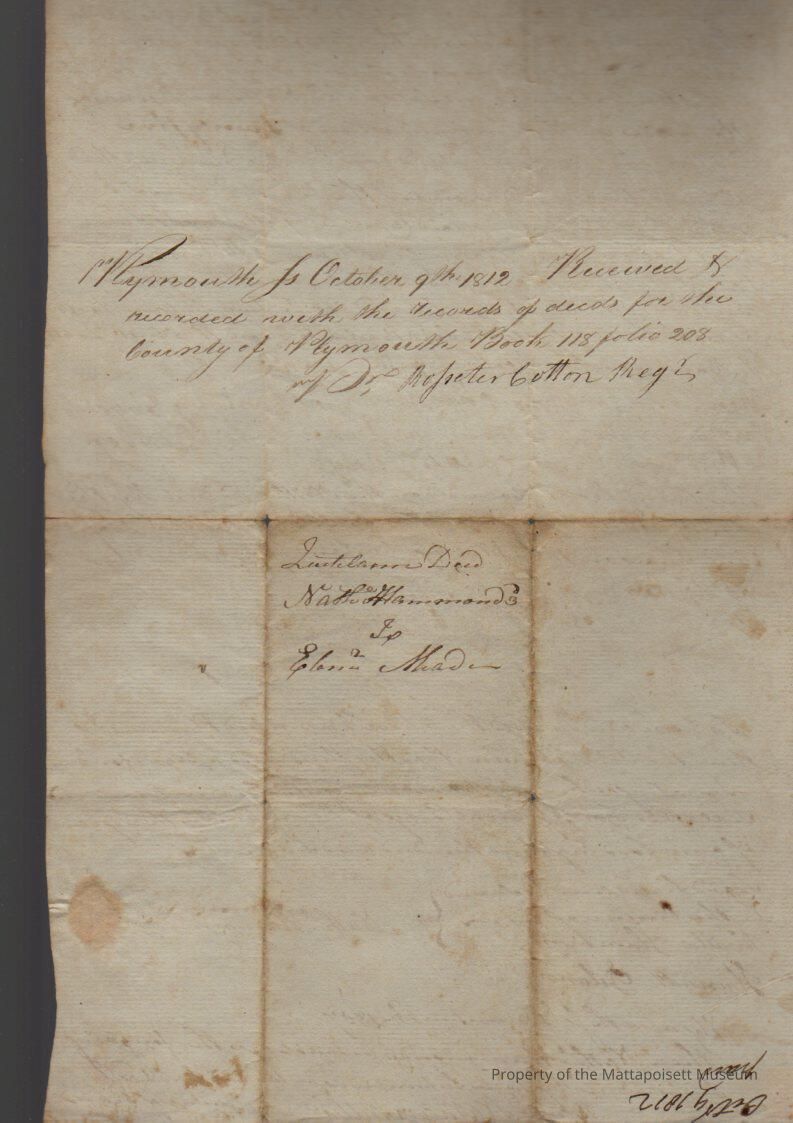 Plymouth Ss October 9th 1812 Received &
recorded with the records of deeds for the
County of Plymouth Book 118 folio 208
Rosseter Cotton Regr
Quitclaim Deed
Nathl Hammond 3d
To
Ebenr Meade
Property of the Mattapoisett Museum
Oct 9 1812